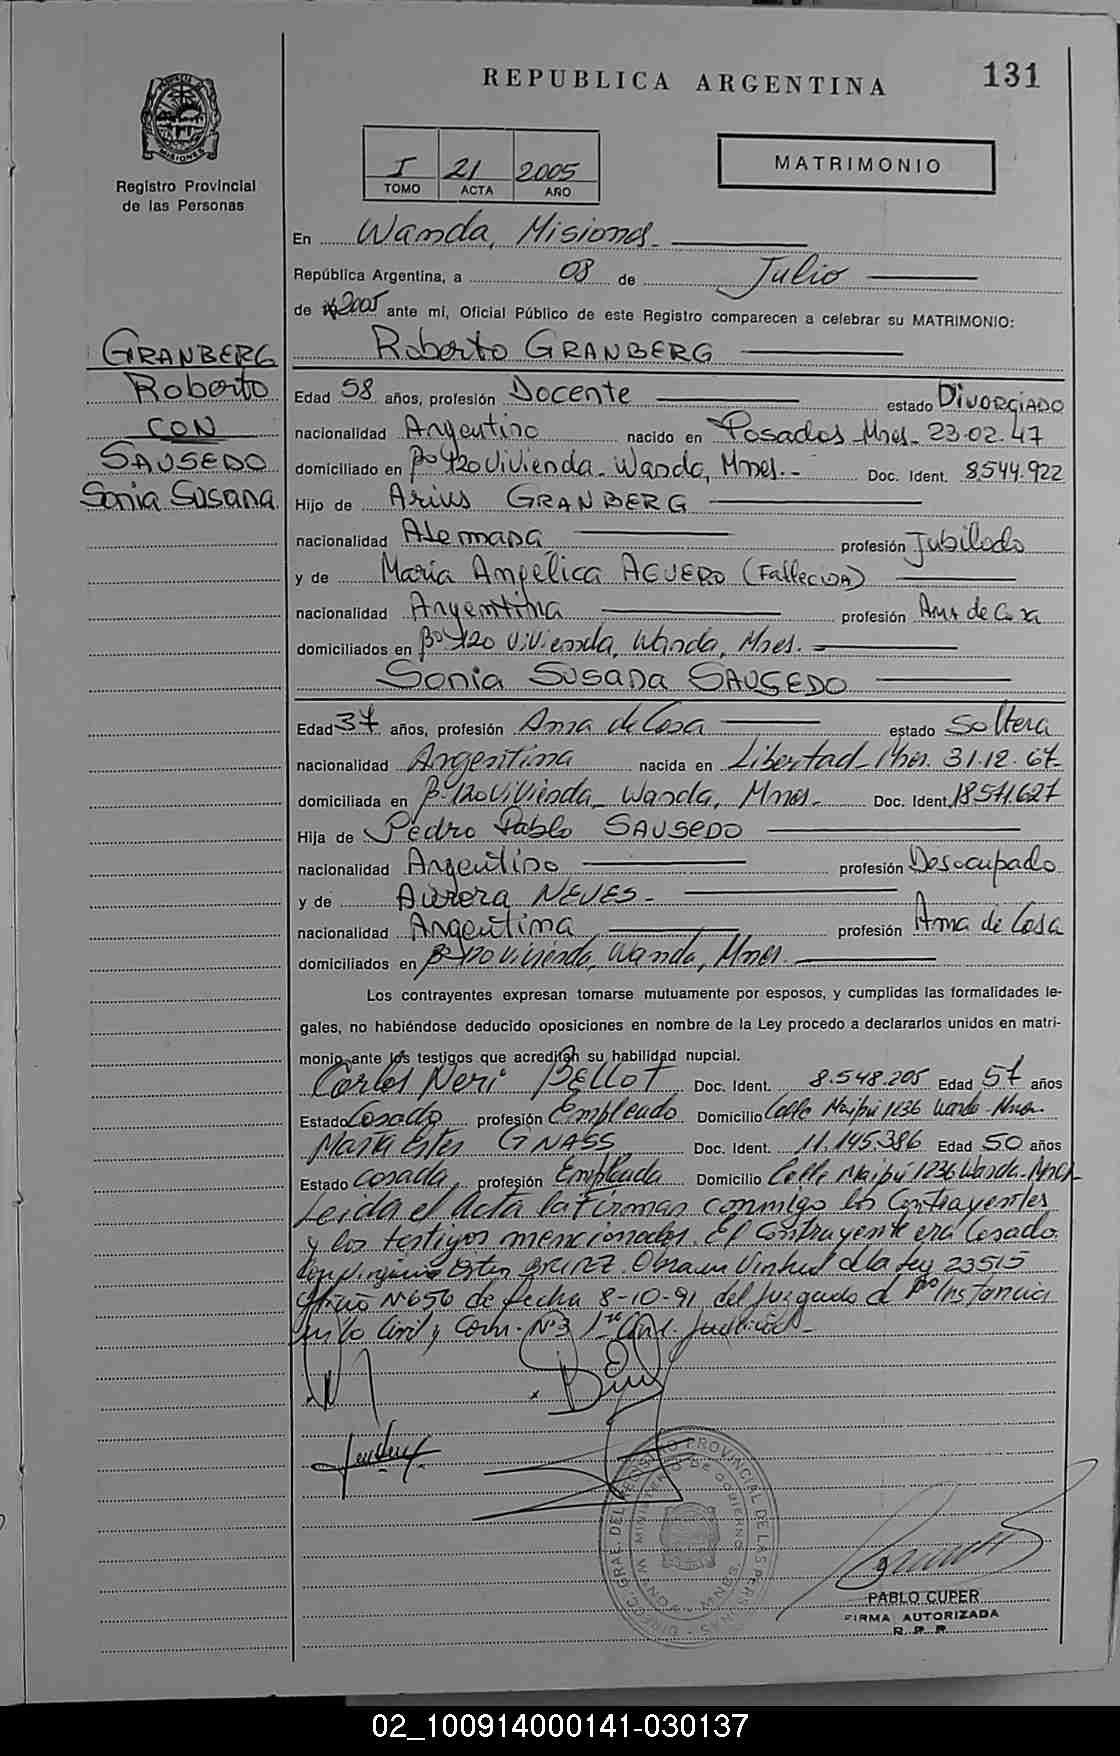 REPUBLICA ARGENTINA
131
MISIONES
Registro Provincial
de las Personas
I 21 2005
TOMO ACTA AÑO
MATRIMONIO
En Wanda, Misiones.
República Argentina, a 08 de Julio
de 2005 ante mí, Oficial Público de este Registro comparecen a celebrar su MATRIMONIO:
GRANBERG
Roberto
CON
SAUSEDO
Sonia Susana
Roberto GRANBERG
Edad 58 años, profesión Docente estado DIVORCIADO
nacionalidad Argentino nacido en Posadas Mnes- 23.02.47
domiciliado en Bº 120 Vivienda- Wanda, Mnes.- Doc. Ident. 8.544.922
Hijo de Arius GRANBERG
nacionalidad Alemana profesión Jubilado
y de María Angélica AGUERO (FallecidA)
nacionalidad Argentina profesión Ama de Casa
domiciliados en Bº 120 Vivienda, Wanda, Mnes.-
Sonia Susana SAUSEDO
Edad 37 años, profesión Ama de Casa estado Soltera
nacionalidad Argentina nacida en Libertad- Mnes. 31.12.67-
domiciliada en Bº 120 Vivienda- Wanda, Mnes.- Doc. Ident. 18.571.627
Hija de Pedro Pablo SAUSEDO
nacionalidad Argentino profesión Desocupado
y de Aurora NEVES.-
nacionalidad Argentina profesión Ama de Casa
domiciliados en Bº 120 Vivienda, Wanda, Mnes.
Los contrayentes expresan tomarse mutuamente por esposos, y cumplidas las formalidades le-
gales, no habiéndose deducido oposiciones en nombre de la Ley procedo a declararlos unidos en matri-
monio ante los testigos que acreditan su habilidad nupcial.
Carlos Neri BELLOT Doc. Ident. 8.548.205 Edad 57 años
Estado Casado profesión Empleado Domicilio Calle Maipú 1236 Wanda-Mnes.
María Ester GNASS Doc. Ident. 11.145.386 Edad 50 años
Estado casada, profesión Empleada Domicilio Calle Maipú 1236 Wanda-Mnes.
Leida el Acta la Firman conmigo los Contrayentes
y los testigos mencionados. El Contrayente era Casado
con Virginia Ester Obra en Virtud de la Ley 23515
Oficio Nº 656 de fecha 8-10-91 del Juzgado de 1ª Instancia
en lo Civil y Com. Nº 3 Judicial-
DIREC. GRAL. DEL REGISTRO PROVINCIAL DE LAS PERSONAS
MINISTERIO DE GOBIERNO
PABLO CUPER
FIRMA AUTORIZADA
R. P. P.
02_100914000141-030137